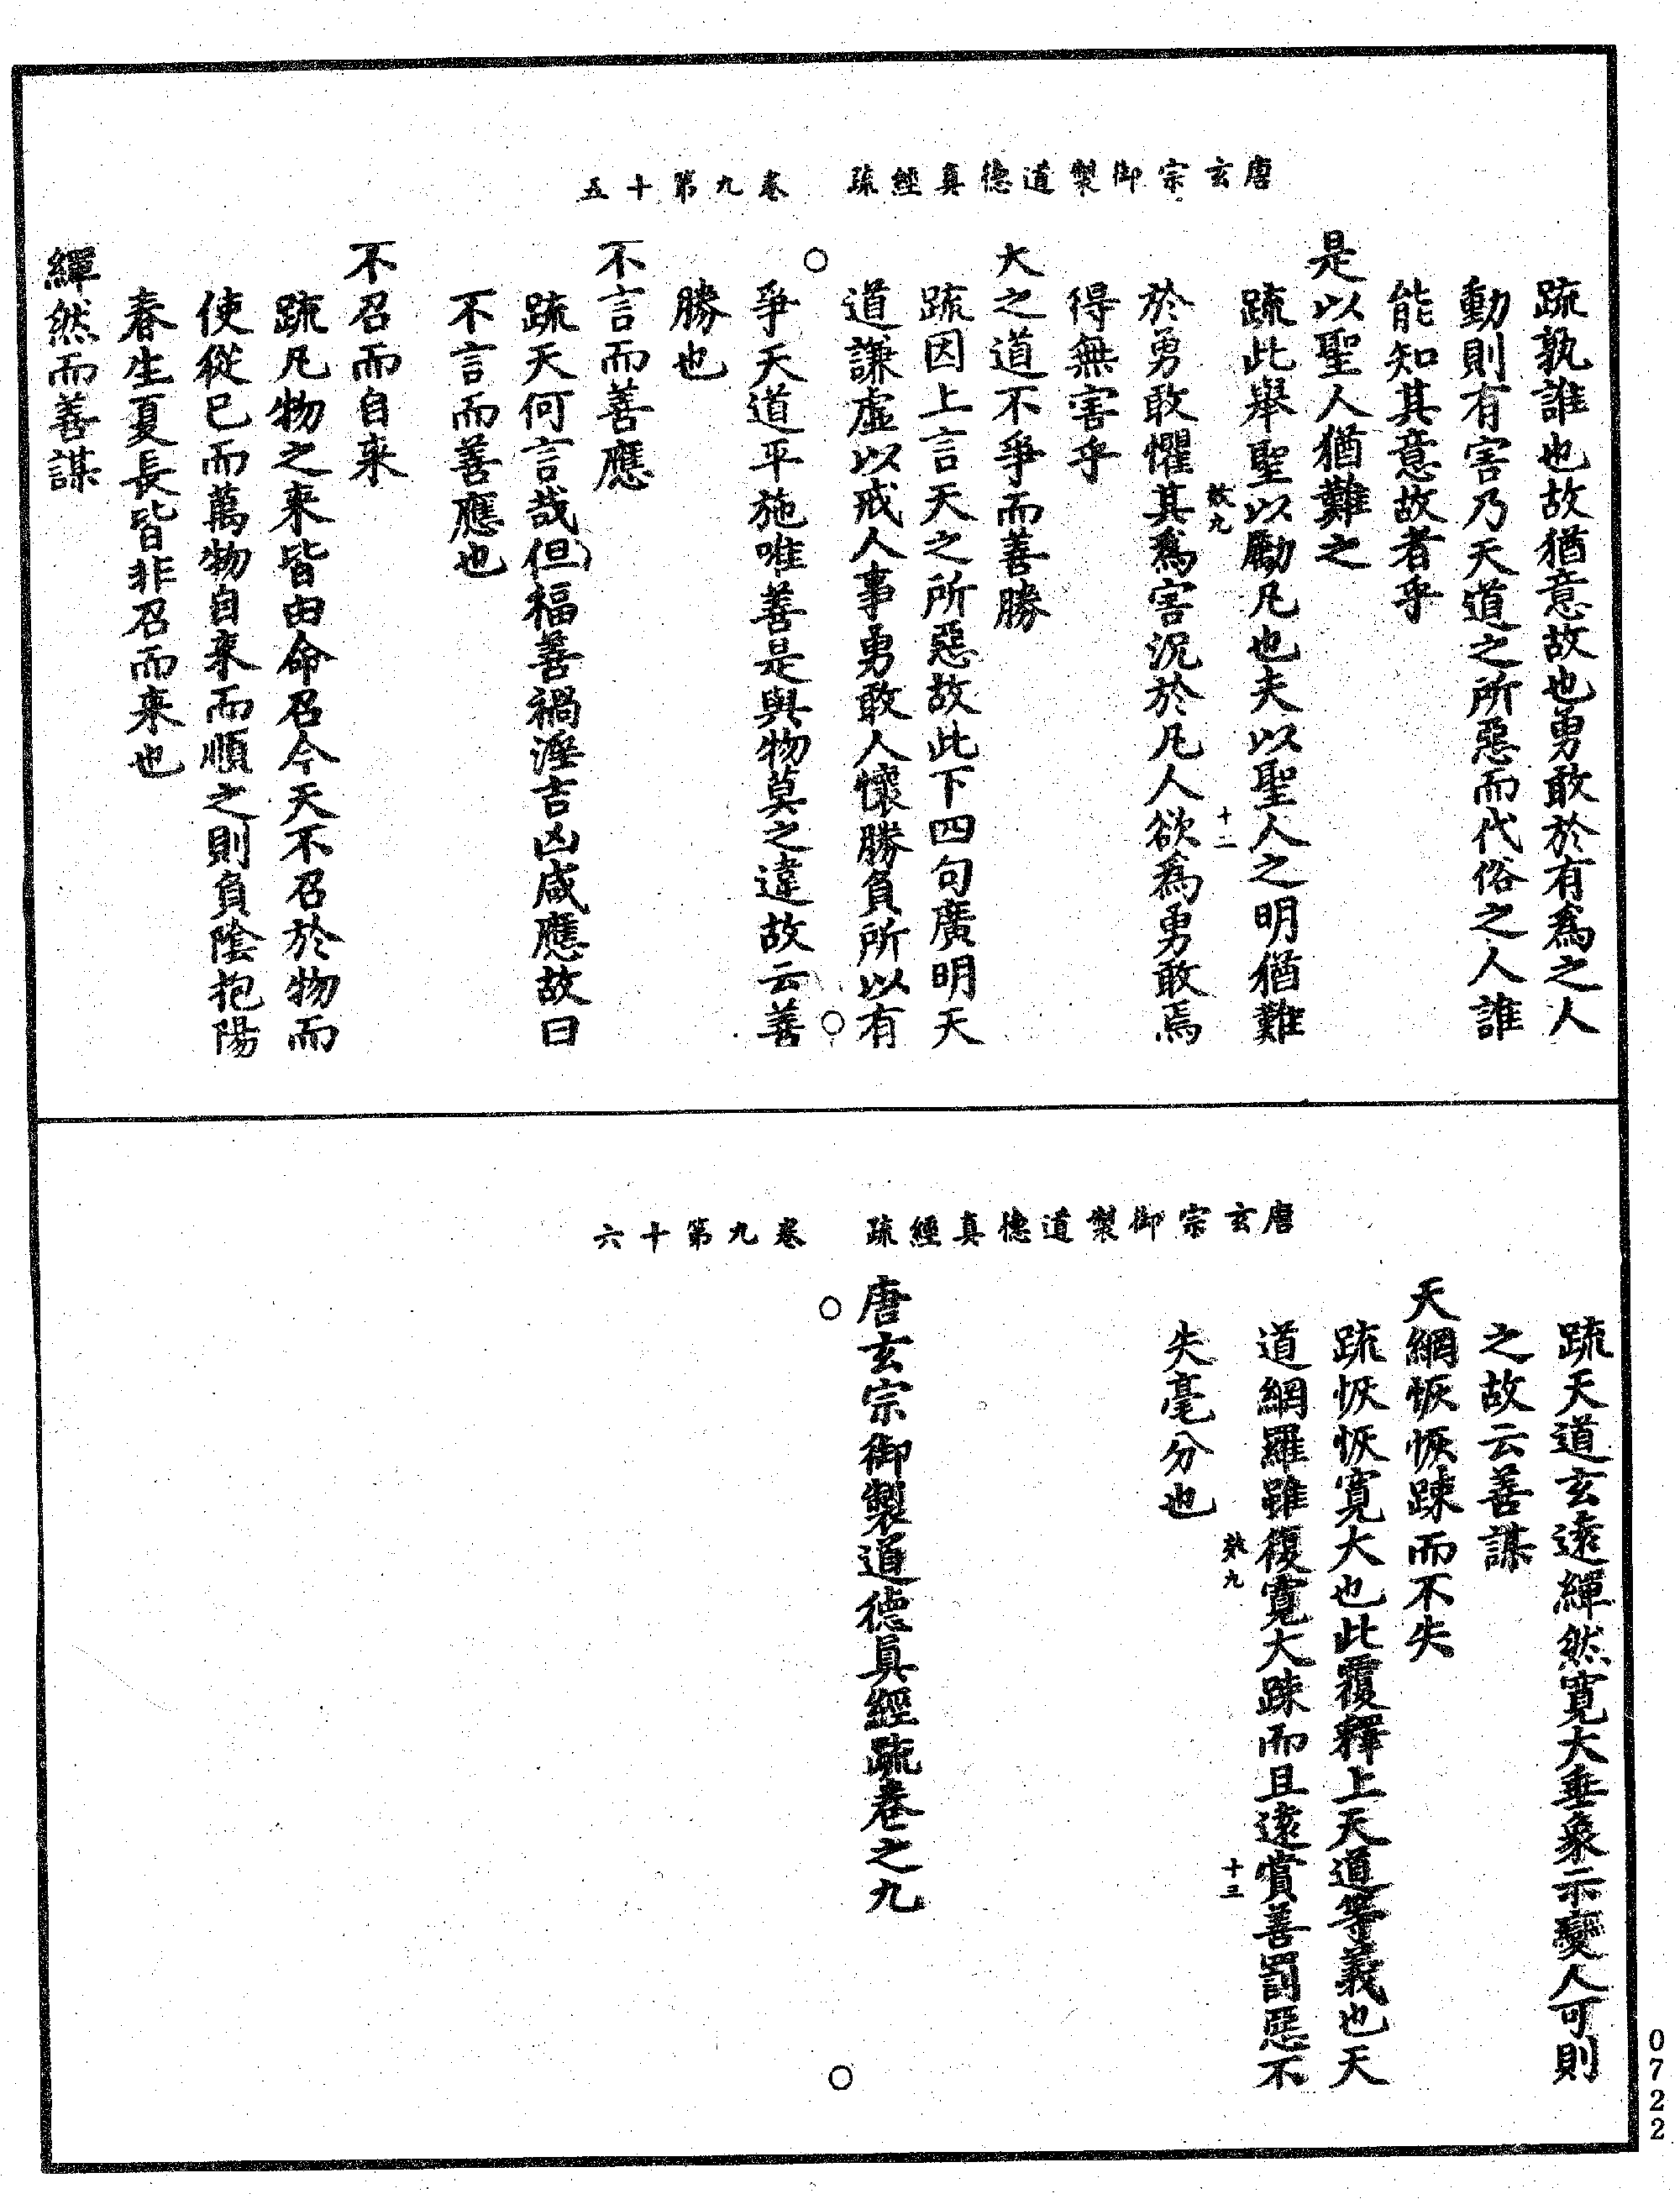 唐玄宗御製道德真經疏　卷九第十五
疏孰誰也故猶意故也勇敢於有為之人
動則有害乃天道之所惡而代俗之人誰
能知其意故者乎
是以聖人猶難之
疏此舉聖以勵凡也夫以聖人之明猶難
敢九　十二
於勇敢懼其為害況於凡人欲為勇敢焉
得無害乎
天之道不爭而善勝
疏因上言天之所惡故此下四句廣明天
道謙虛以戒人事勇敢人懷勝負所以有
爭天道平施唯善是與物莫之違故云善
勝也
不言而善應
疏天何言哉但福善禍淫吉凶咸應故曰
不言而善應也
不召而自来
疏凡物之来皆由命召今天不召於物而
使從己而萬物自来而順之則負陰抱陽
春生夏長皆非召而来也
繟然而善謀
唐玄宗御製道德真經疏　卷九第十六
疏天道玄遠繟然寬大垂象示變人可則
之故云善謀
天網恢恢踈而不失
疏恢恢寬大也此覆釋上天道等義也天
道網羅雖復寬大踈而且遠賞善罰惡不
敢九　十三
失毫分也
唐玄宗御製道德真經疏卷之九
0722